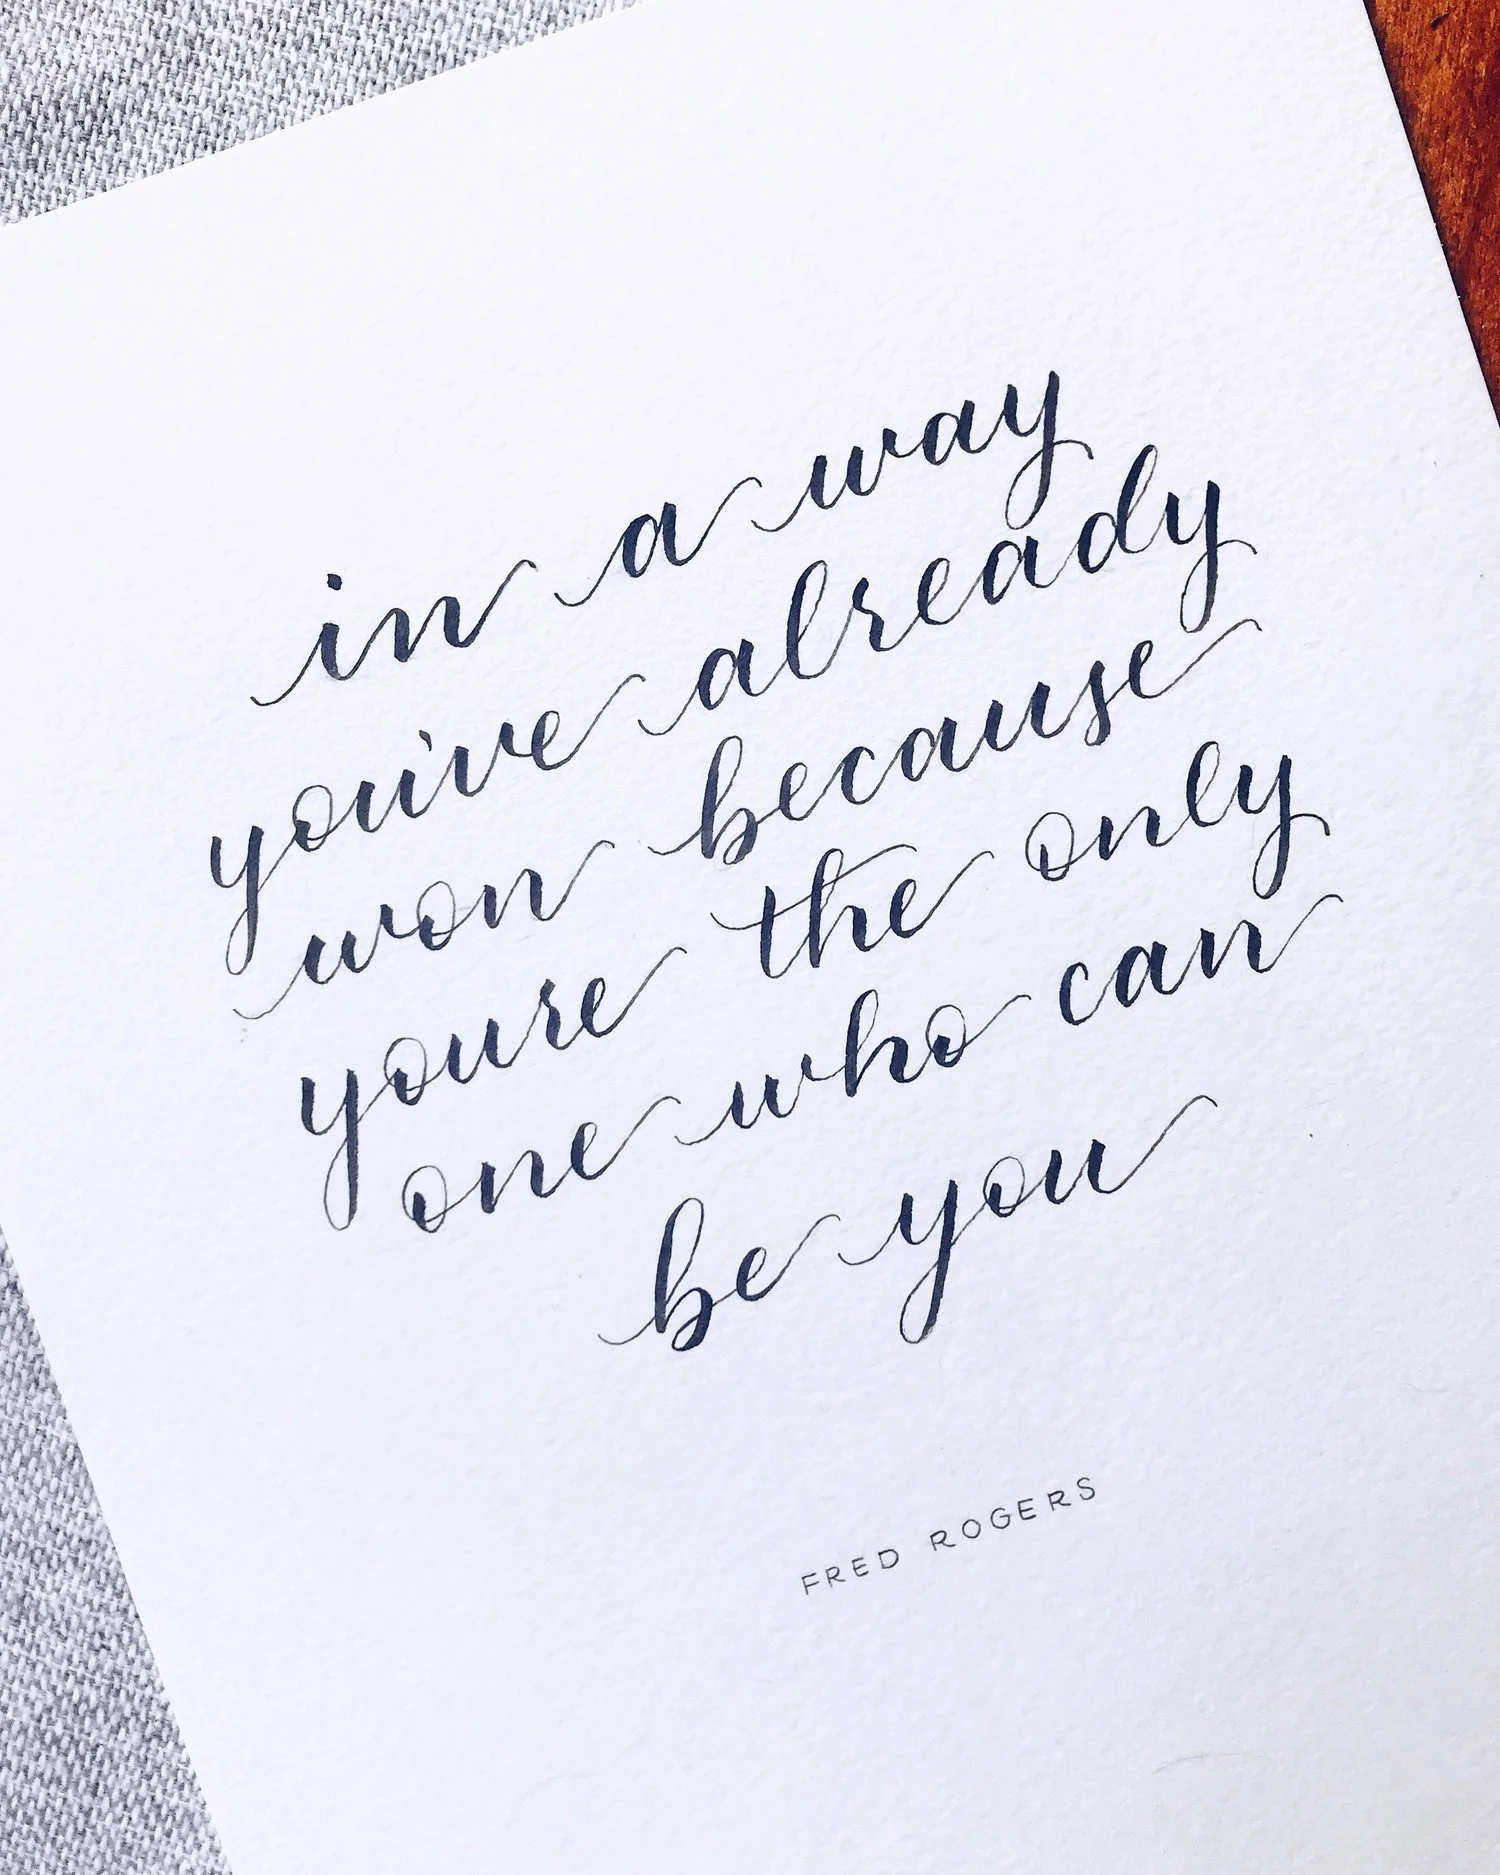 in a way
you've already
won because
youre the only
one who can
be you
FRED ROGERS